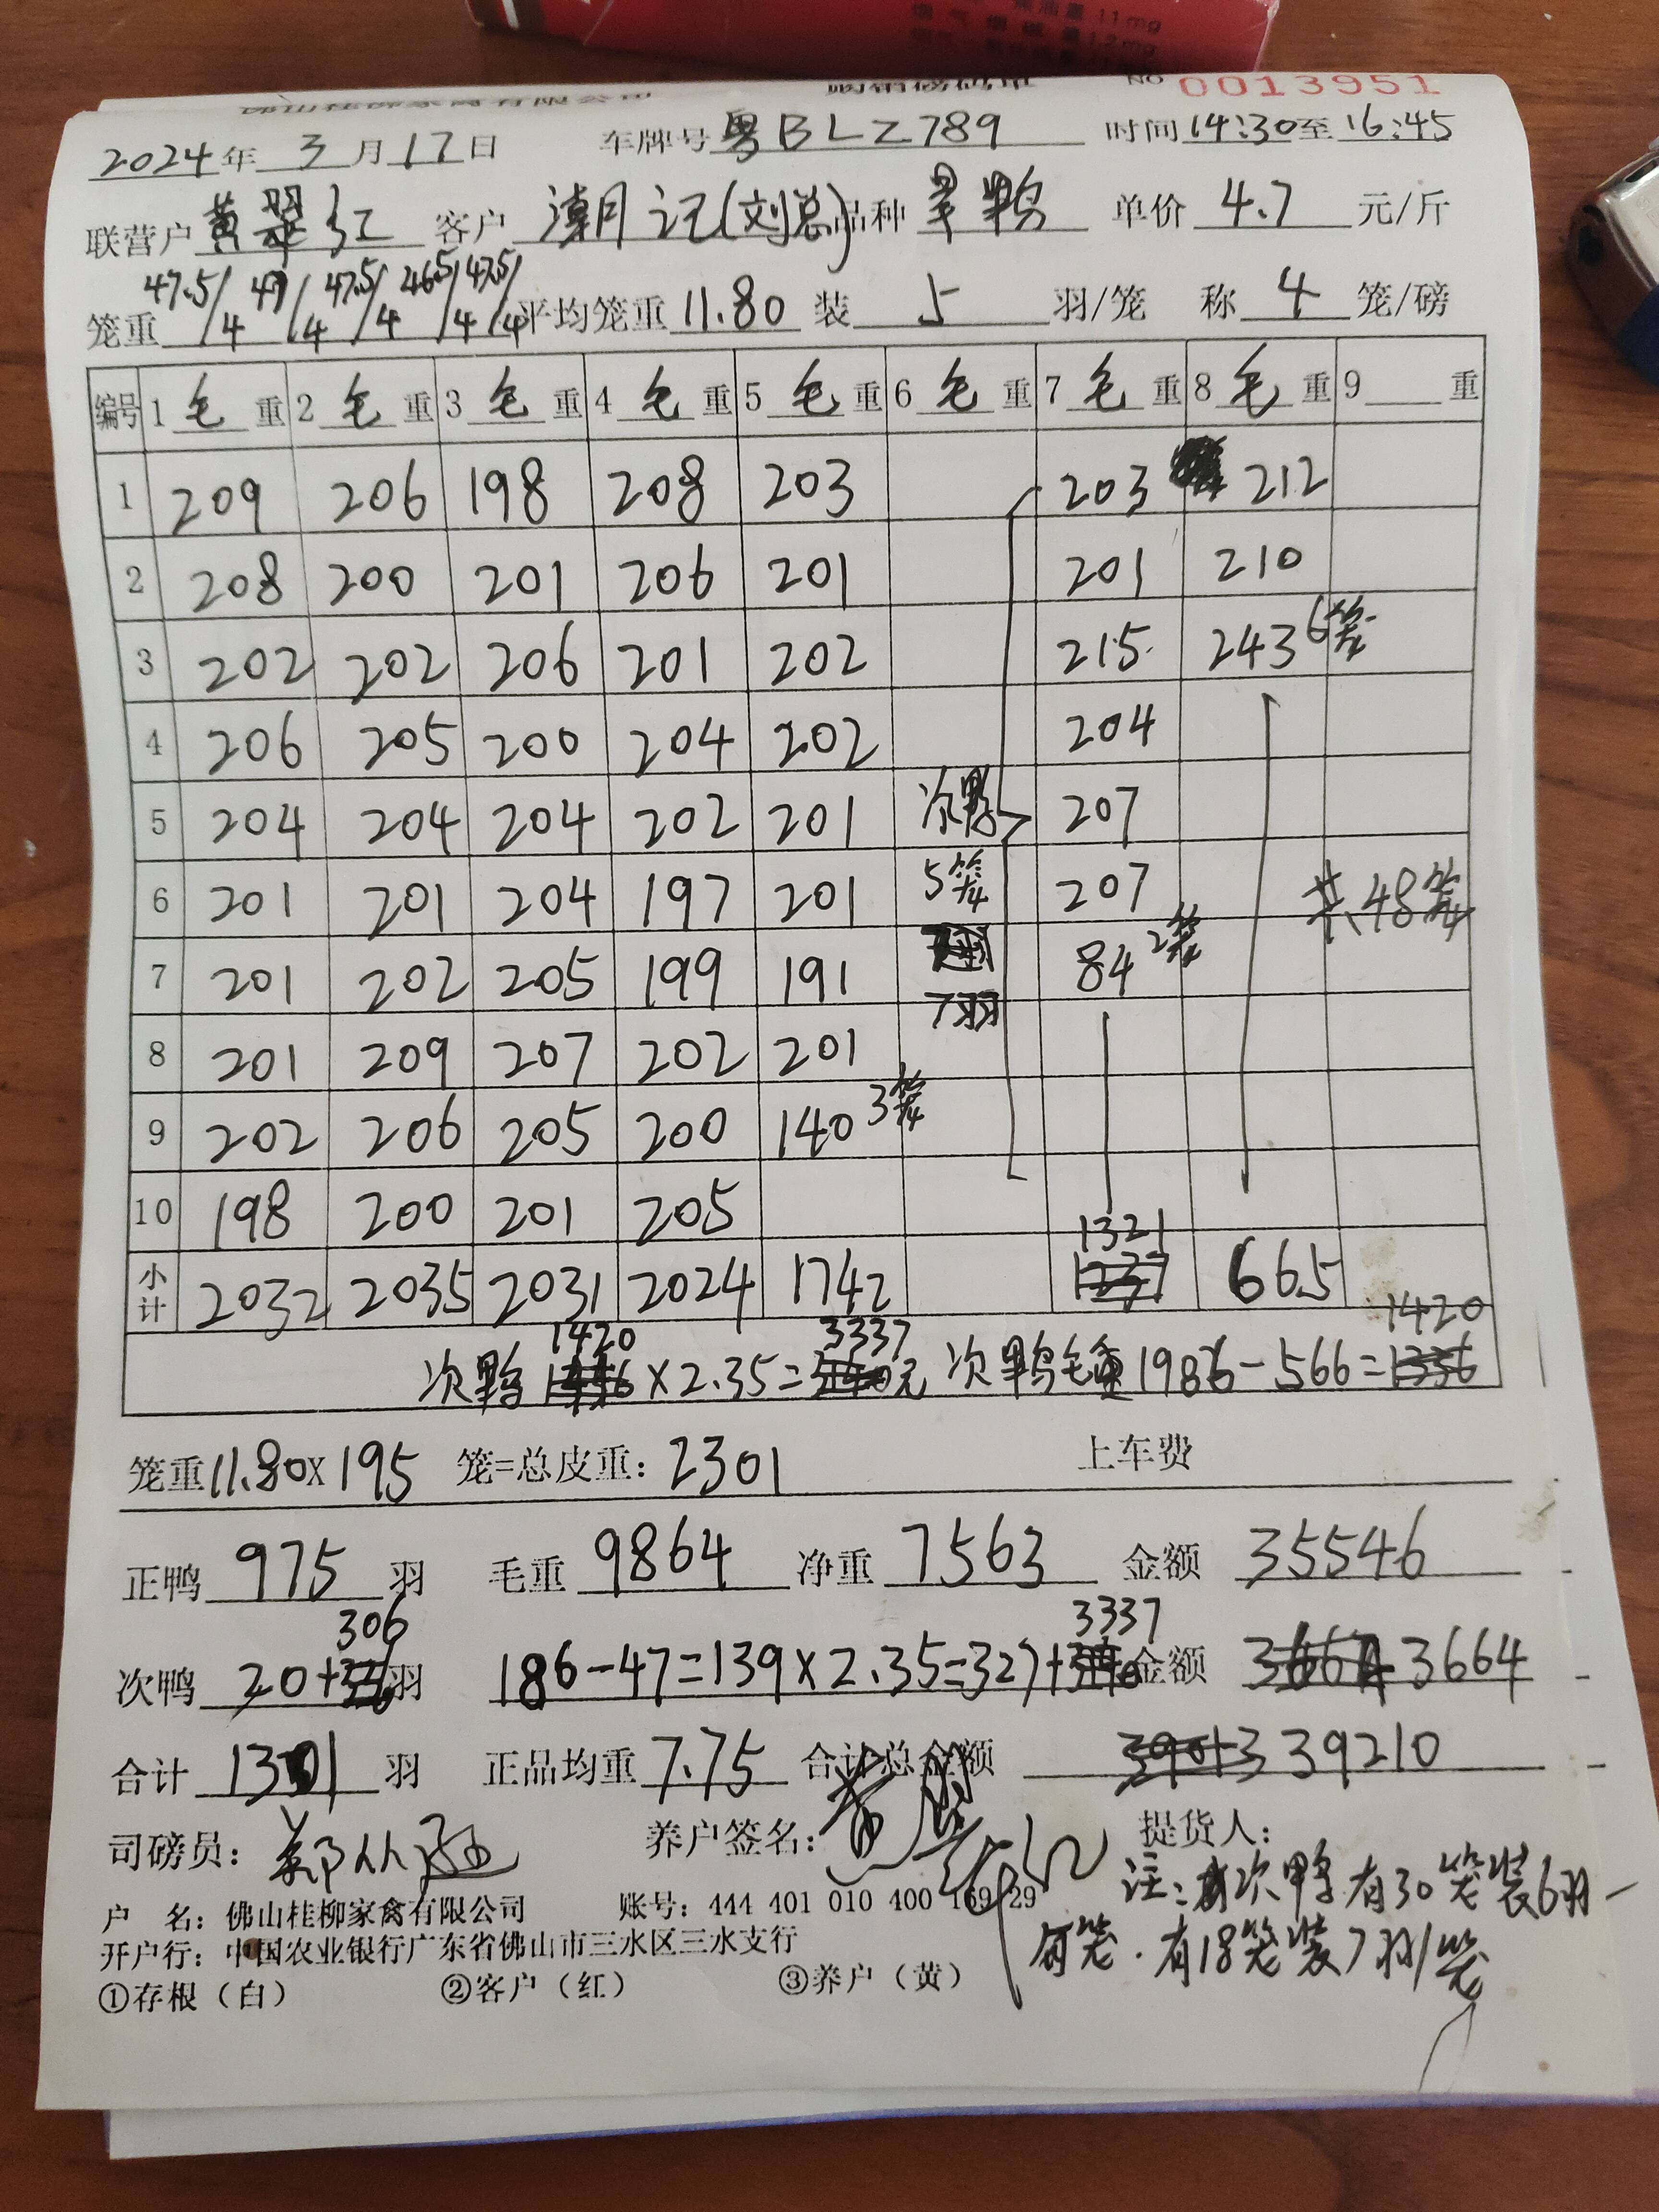 NO 0013951
2024年 3月17日 车牌号 粤BLZ789 时间 14:30至16:45
联营户 黄翠红 客户 潮记(刘总) 品种 单价 4.7 元/斤
笼重 47.5/4 49/4 47.5/4 46.5/4 47.5/4 平均笼重 11.80 装 5 羽/笼 称 4 笼/磅
编号 1 毛 重 2 毛 重 3 毛 重 4 毛 重 5 毛 重 6 毛 重 7 毛 重 8 毛 重 9 重
1 209 206 198 208 203 203 212
2 208 200 201 206 201 201 210
3 202 202 206 201 202 215 243 6笼
4 206 205 200 204 202 204
5 204 204 204 202 201 次鸭 207
6 201 201 204 197 201 5笼 207 共48笼
7 201 202 205 199 191 7羽 84 2笼
8 201 209 207 202 201
9 202 206 205 200 140 3笼
10 198 200 201 205
小计 2032 2035 2031 2024 1742 1321 665
次鸭 1420 ×2.35=3337元 次鸭毛重 1986-566=1420
笼重 11.80 × 195 笼=总皮重: 2301 上车费
正鸭 975 羽 毛重 9864 净重 7563 金额 35546
次鸭 20+306 羽 186-47=139×2.35=327+3337 金额 3664
合计 1301 羽 正品均重 7.75 合计总金额 39210
司磅员: 养户签名: 提货人:
注:次鸭有30笼装6羽一
户 名: 佛山桂柳家禽有限公司 账号: 444 401 010 400 169 29
每笼.有18笼装7羽/笼
开户行: 中国农业银行广东省佛山市三水区三水支行
①存根(白) ②客户(红) ③养户(黄)